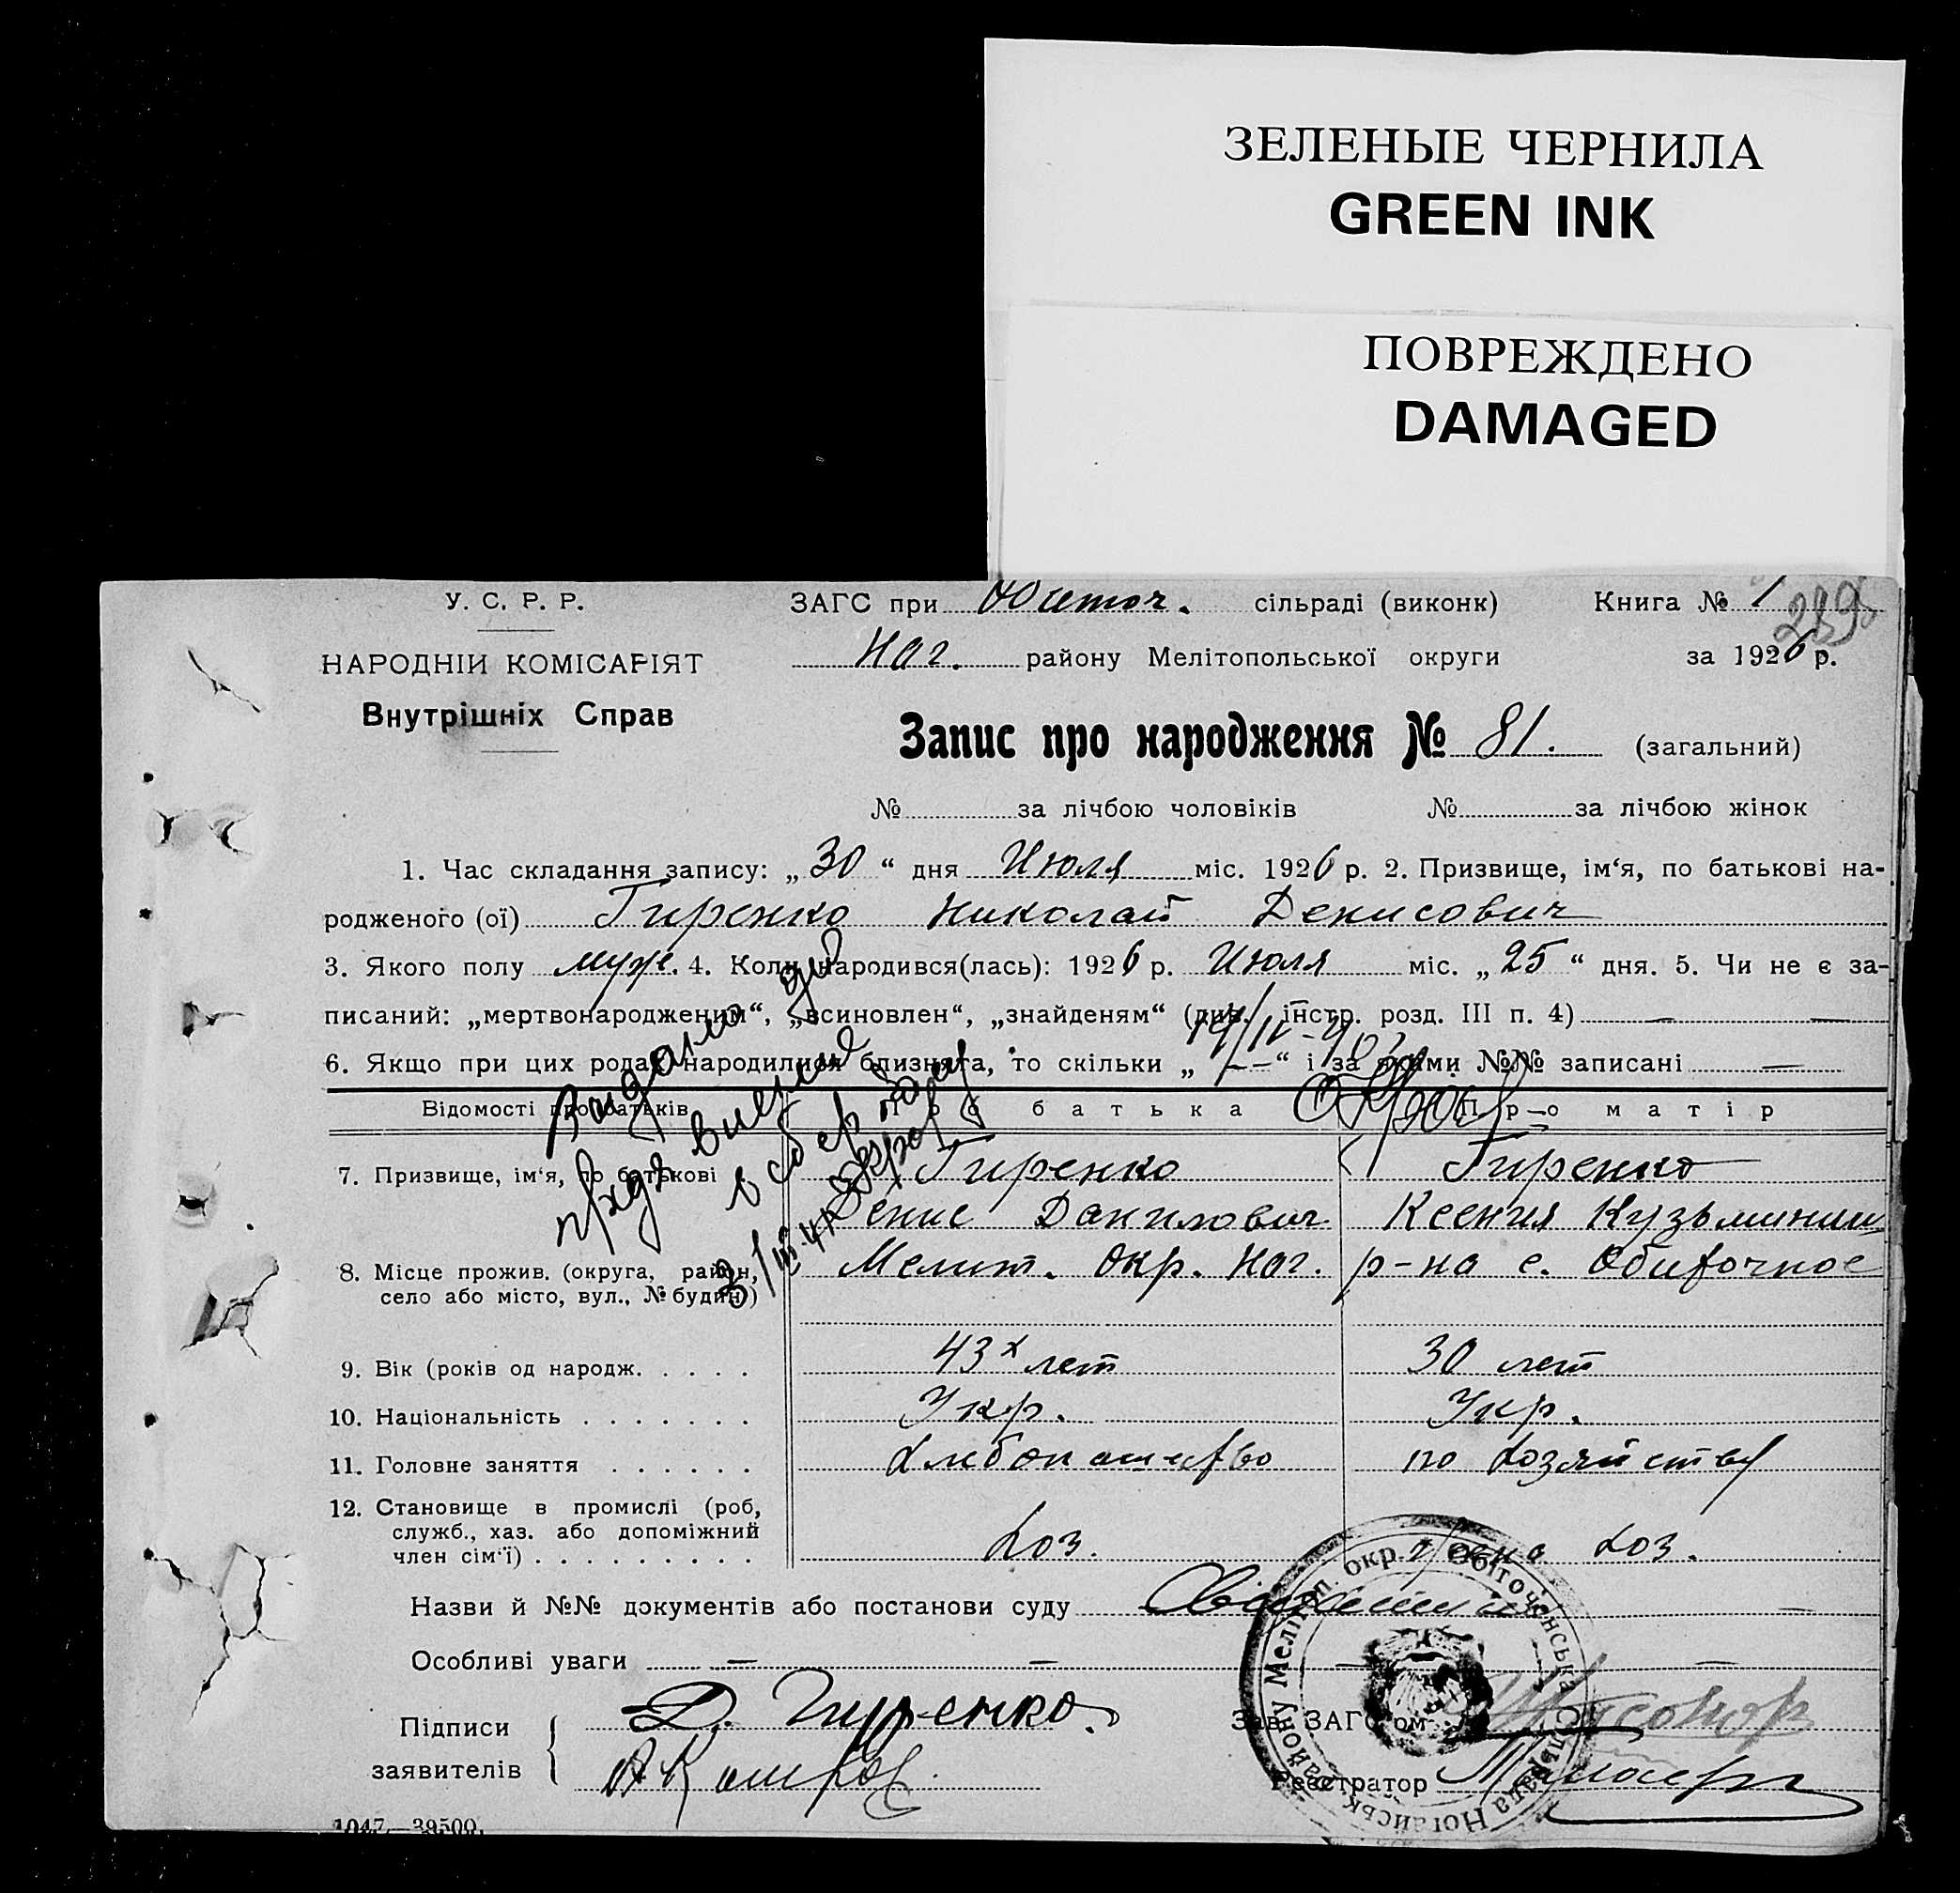 ЗЕЛЕНЫЕ ЧЕРНИЛА
GREEN INK
ПОВРЕЖДЕНО
DAMAGED
У. С. Р. Р.
ЗАГС при Обиточ. сільраді (виконк) Книга № 1
239
НАРОДНІЙ КОМІСАРІЯТ
Ног. району Мелітопольської округи за 1926 р.
Внутрішніх Справ
Запис про народження № 81. (загальний)
№ за лічбою чоловіків № за лічбою жінок
1. Час складання запису: „30“ дня Июля міс. 1926 р. 2. Призвище, ім‘я, по батькові на-
родженого (ої) Гиренко Николай Денисович
3. Якого полу муж. 4. Коли народився(лась): 1926 р. Июля міс. „25“ дня. 5. Чи не є за-
писаний: „мертвонародженим“, „всиновлен“, „знайденям“ (див. інстр. розд. III п. 4) — —
6. Якщо при цих родах народилися близнята, то скільки „— —“ і за якими №№ записані —
Відомості про батьків Про батька Про матір
7. Призвище, ім‘я, по батькові Гиренко Гиренко
Денис Данилович Ксения Кузьминиш
8. Місце прожив. (округа, район, Мелит. окр. Ног. р-на с. Обиточное
село або місто, вул., № будин.)
9. Вік (років од народж. . . . . 43х лет 30 лет
10. Національність . . . . . . . Укр. Укр.
11. Головне заняття . . . . . . Хлебопашество по хозяйству
12. Становище в промислі (роб,
служб., хаз. або допоміжний
член сім‘ї) . . . . . . . . . Хоз. член хоз.
Назви й №№ документів або постанови суду
Особливі уваги — — — —
Підписи Д. Гиренко Зав. ЗАГС‘ом
заявителів Реєстратор
Обіточенська Сільрада Ногайськ. району Меліт. окр.
1047—39500.